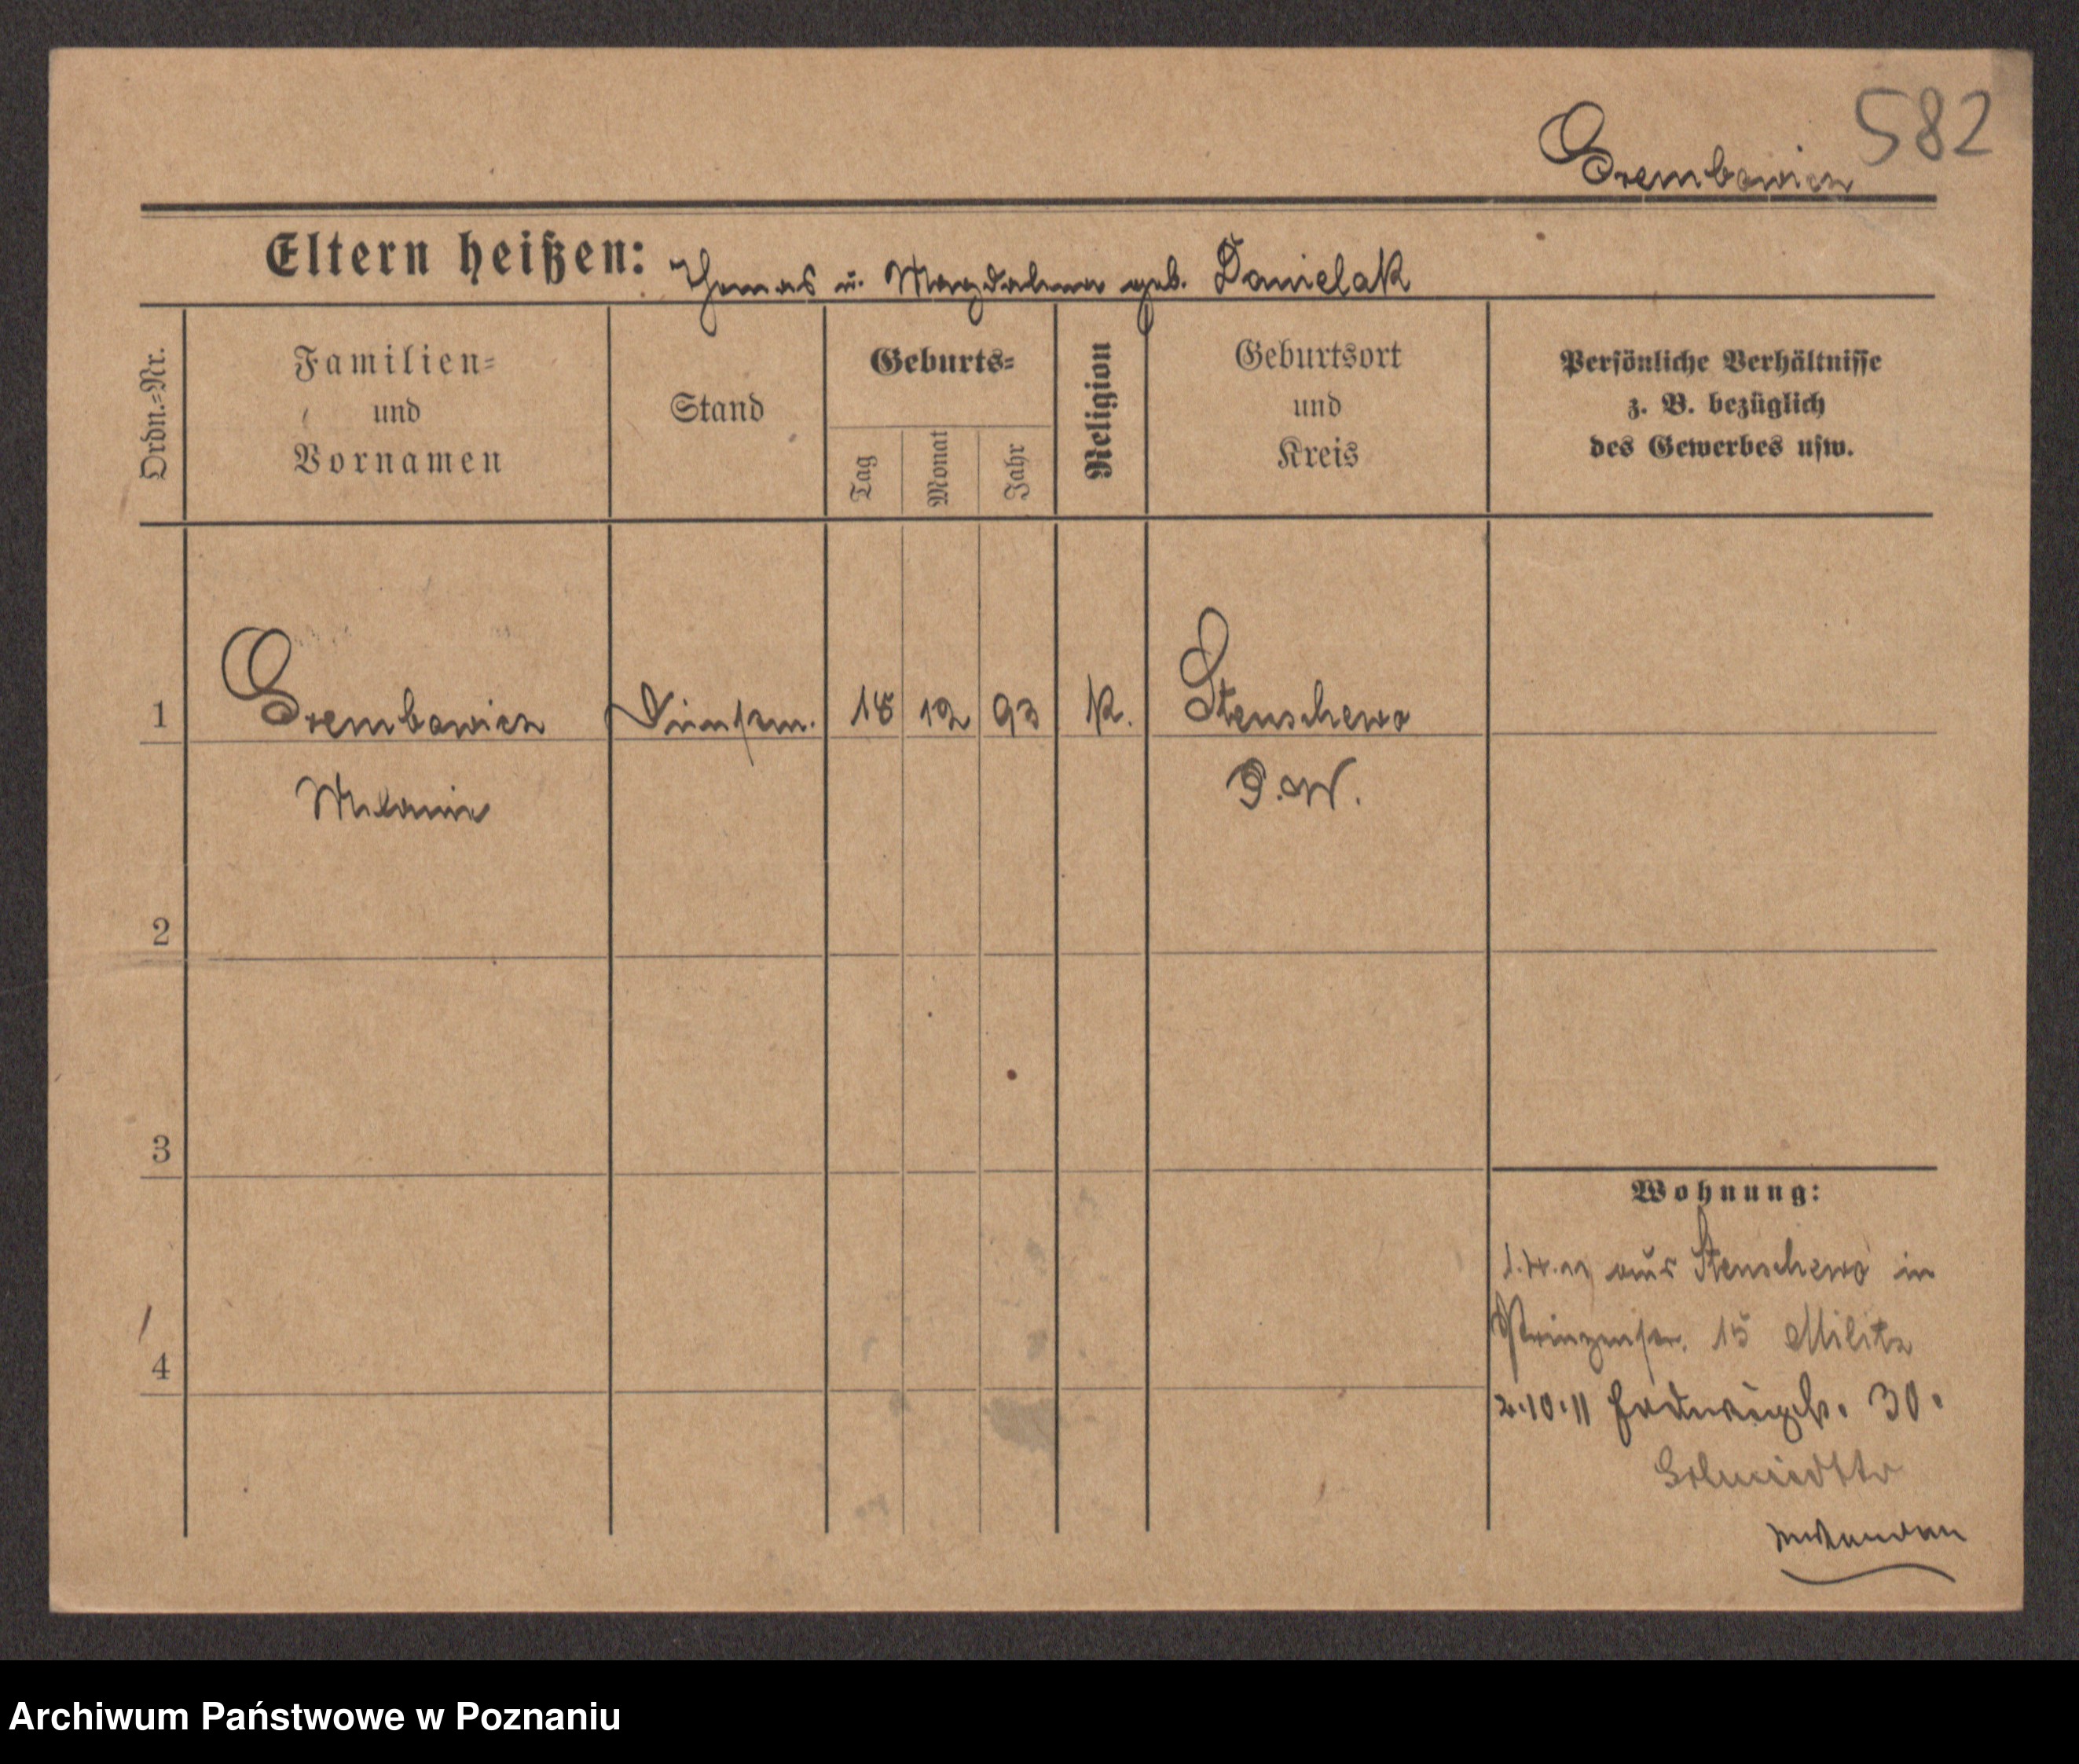 582
Grembowicz
Eltern heißen: Thomas u. Magdalena geb. Danielak
Ordn.=Nr.
Familien=
und
Vornamen
Stand
Geburts=
Tag
Monat
Jahr
Religion
Geburtsort
und
Kreis
Persönliche Verhältnisse
z. B. bezüglich
des Gewerbes usw.
1 Grembowicz 18 12 93 K. Stenschewo
Melanie P.W.
2
3
Wohnung:
aus Stenschewo in
Prinzenstr. 15 Militz
4
2.10.11 30.
Archiwum Państwowe w Poznaniu